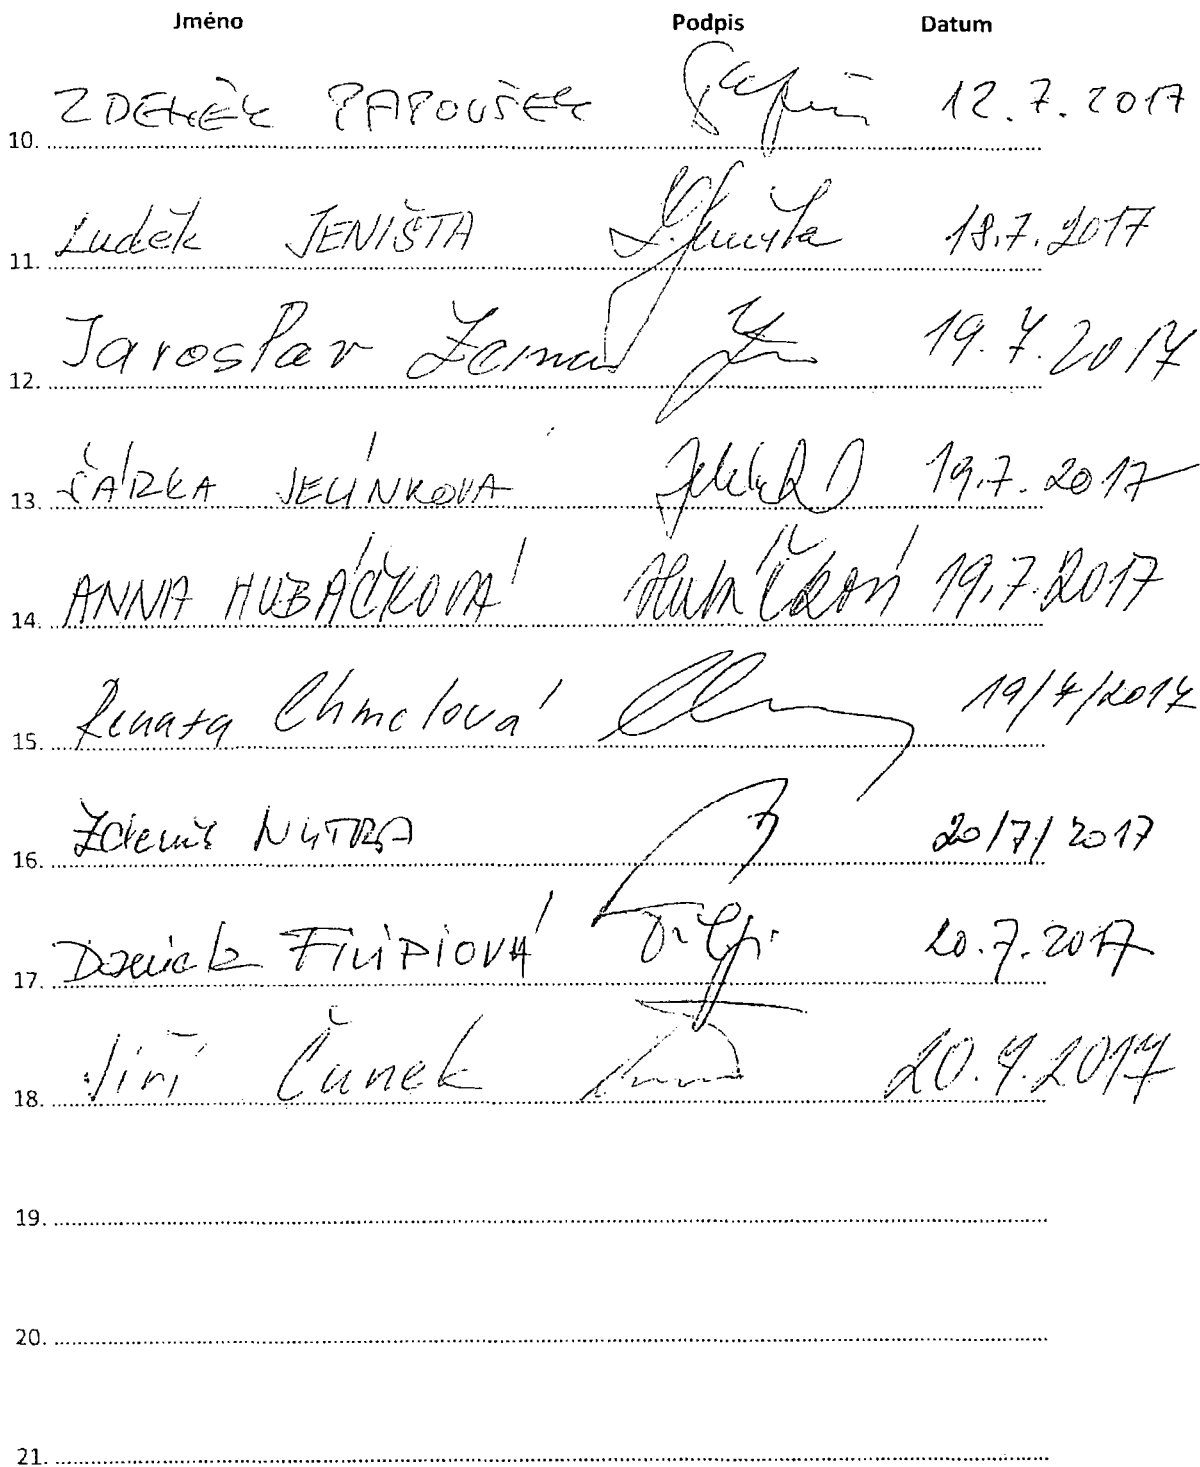 Jméno Podpis Datum
10. ZDENĚK PAPOUŠEK 12.7.2017
11. Luděk JENIŠTA L. Jeništa 18.7.2017
12. Jaroslav Zeman 19.7.2017
13. ŠÁRKA JELÍNKOVÁ 19.7.2017
14. ANNA HUBÁČKOVÁ Hubáčková 19.7.2017
15. Renata Chmelová 19/7/2017
16. Zdeněk NYTRA 20/7/2017
17. Daniela FILIPIOVÁ 20.7.2017
18. Jiří Čunek 20.7.2017
19.
20.
21.